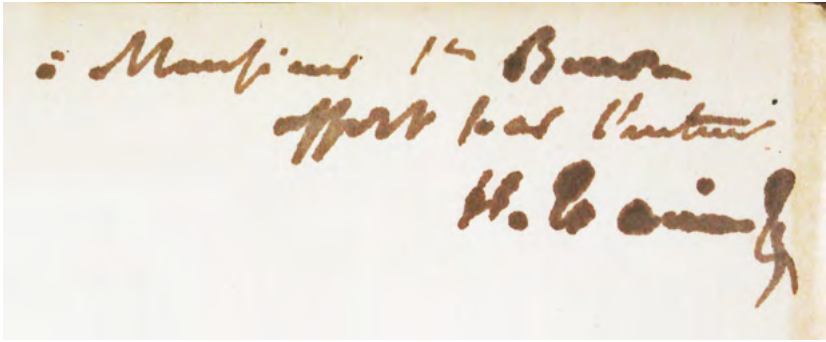 à Monsieur
offert par l'auteur
H. Taine